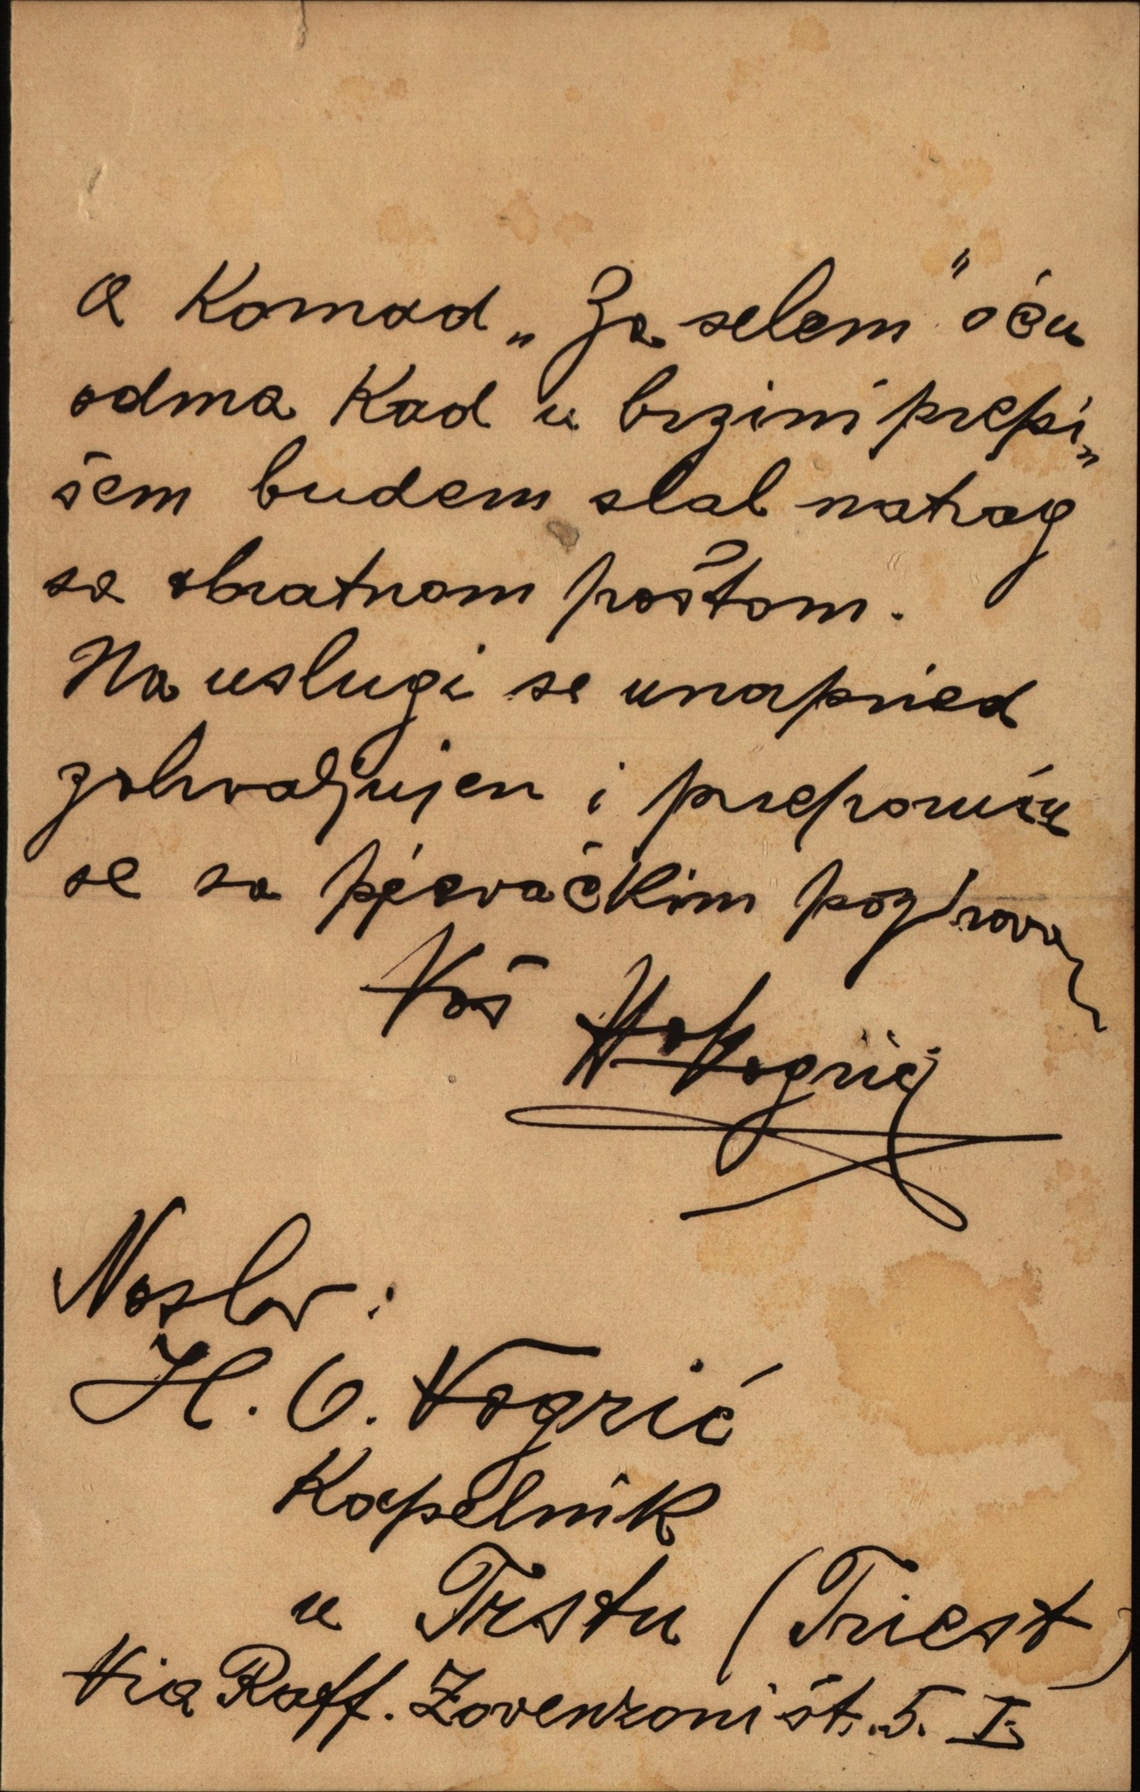 A Komad „Za selom" oću
odma kad u brzini prepi„
šem budem slal natrag
sa obratnom poštom.
Na uslugi se unapried
zahvaljujen i preporuću
se sa pjevačkim pozdravom
Vaš HOVogrič
Naslov:
H. O. Vogrić
Kapelnik
u Trstu (Triest)
Via Raff. Zovenzoni št. 5. I.